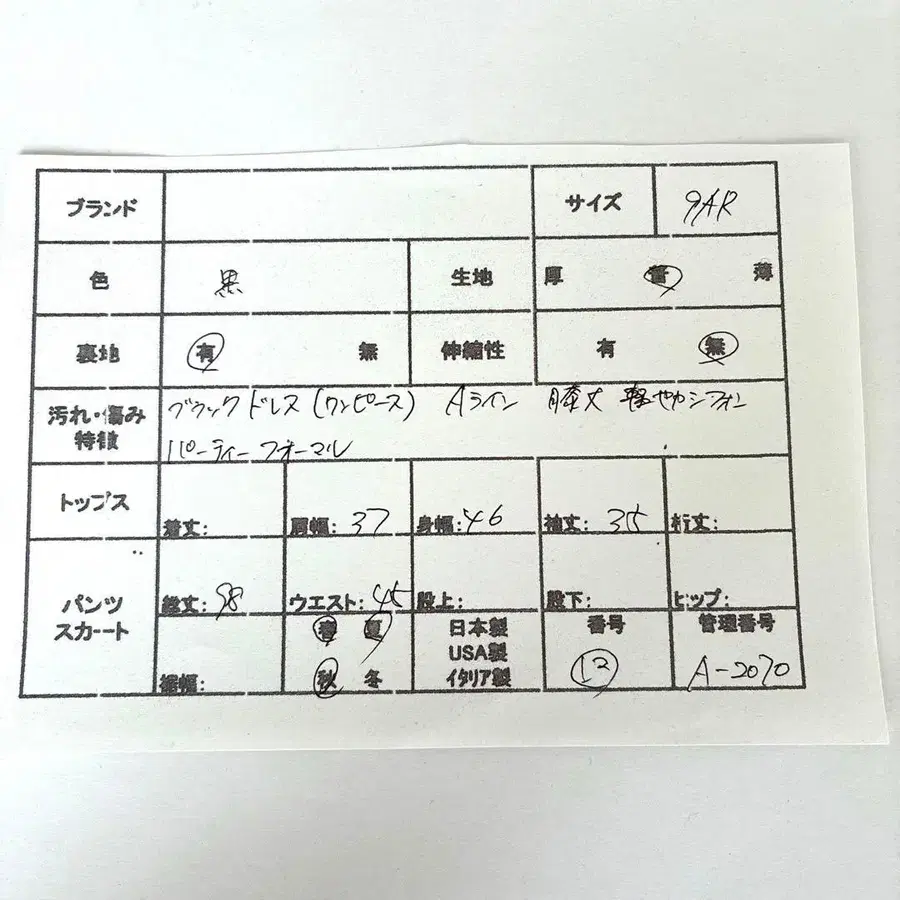 ブランド サイズ 9AR
色 黒 生地 厚 普 薄
裏地 有 無 伸縮性 有 無
汚れ・傷み
特徴
ブラックドレス(ワンピース) Aライン 膝丈 軽やかシフォン
パーティーフォーマル
トップス 着丈: 肩幅: 37 身幅: 46 袖丈: 35 裄丈:
パンツ
スカート
総丈: 98 ウエスト: 45 股上: 股下: ヒップ:
裾幅:
春 夏
秋 冬
日本製
USA製
イタリア製
番号
管理番号
A-2070